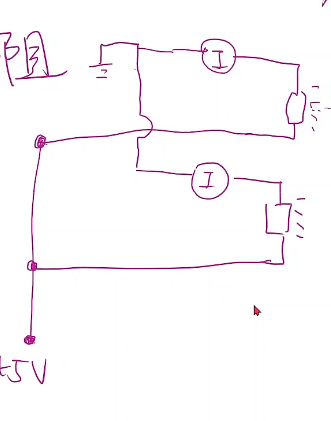 阻
I
I
+5V